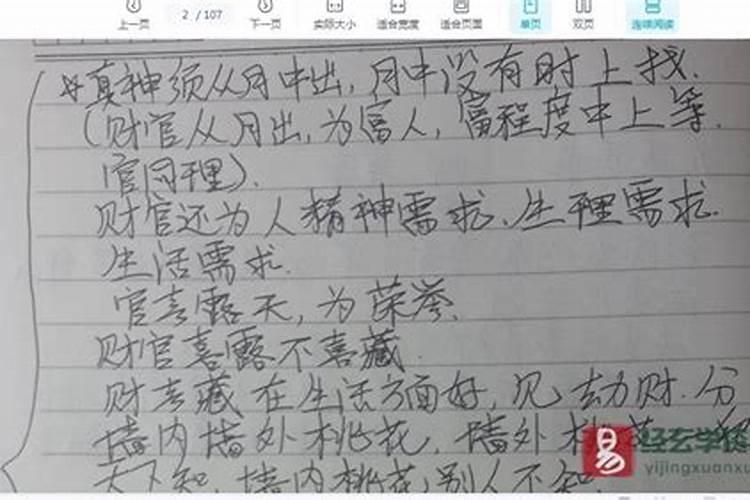 上一页 2 / 107 下一页 实际大小 适合宽度 适合页面 单页 双页 连续阅读
真神须从月中出，月中没有时上找.
（财官从月出，为富人，富程度中上等.
官同理）.
财官还为人精神需求、生理需求.
生活需求.
官喜露天，为荣誉.
财官喜露不喜藏.
财喜藏在生活方面好，见劫财.分
墙内墙外桃花，墙外
天下知，墙内桃花，别人不知
易 经玄学
yijingxuanxu